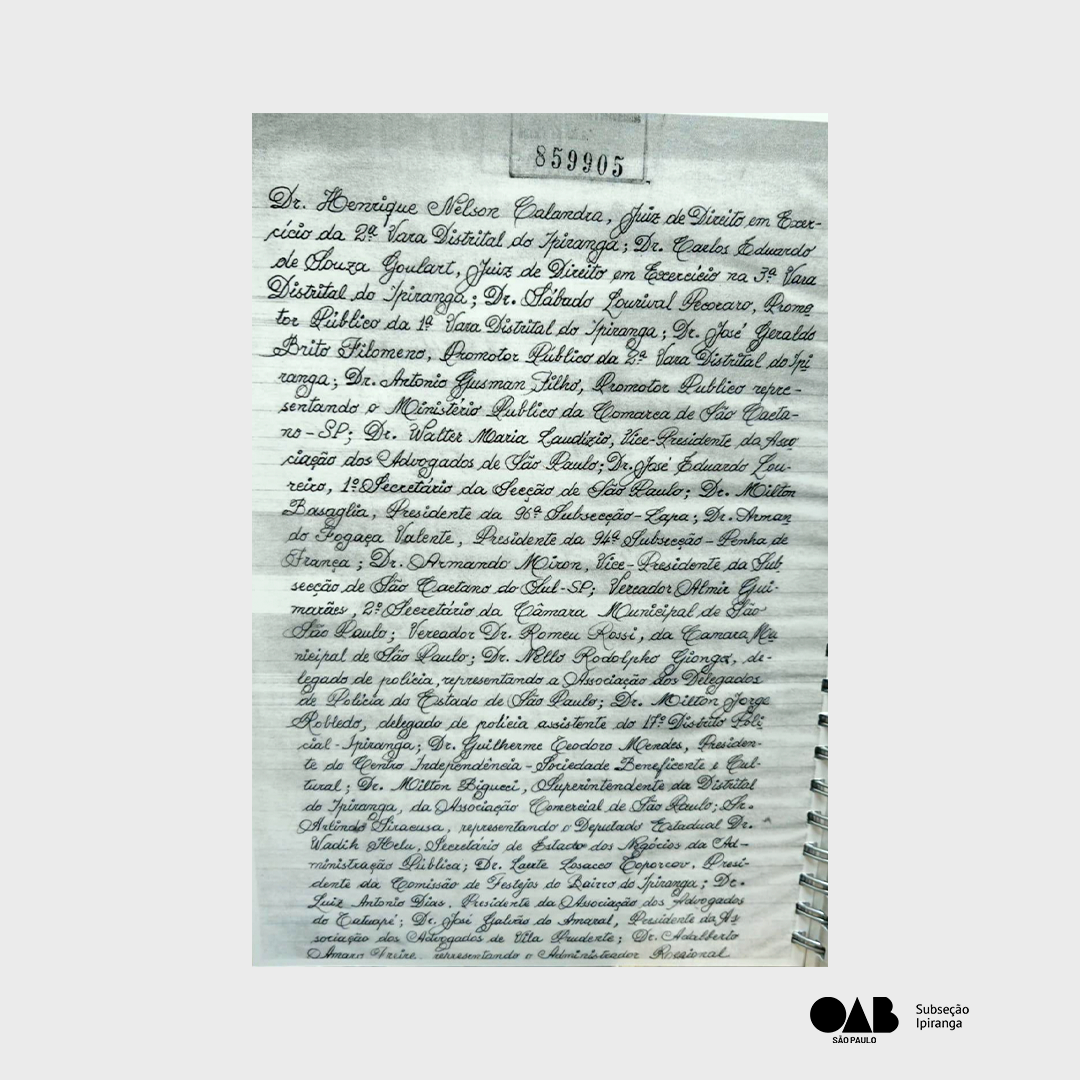 859905
Dr. Henrique Nelson Calandra, Juiz de Direito em Exer-
cício da 2ª Vara Distrital do Ipiranga; Dr. Carlos Eduardo
de Souza Goulart, Juiz de Direito em Exercício na 3ª Vara
Distrital do Ipiranga; Dr. Sábado Lourival Pecoraro, Promo
tor Público da 1ª Vara Distrital do Ipiranga; Dr. José Geraldo
Brito Filomeno, Promotor Público da 2ª Vara Distrital do Ipi
ranga; Dr. Antonio Gusman Filho, Promotor Publico repre-
sentando o Ministério Publico da Comarca de São Caeta-
no-SP; Dr. Walter Maria Laudizio, Vice-Presidente da Asso
ciação dos Advogados de São Paulo; Dr. José Eduardo Lou-
reiro, 1º Secretário da Secção de São Paulo; Dr. Milton
Basaglia, Presidente da 96ª Subsecção-Lapa; Dr. Arman
do Fogaça Valente, Presidente da 94ª Subsecção-Penha de
França; Dr. Armando Miron, Vice-Presidente da Sub
secção de São Caetano do Sul-SP; Vereador Almir Gui-
marães, 2º Secretário da Câmara Municipal de São
São Paulo; Vereador Dr. Romeu Rossi, da Camara Mu
nicipal de São Paulo; Dr. Nello Rodolpho Gionga, de-
legado de polícia, representando a Associação dos Delegados
de Polícia do Estado de São Paulo; Dr. Milton Jorge
Robledo, delegado de polícia assistente do 17º Distrito Poli
cial-Ipiranga; Dr. Guilherme Teodoro Mendes, Presiden-
te do Centro Independência-Sociedade Beneficente e Cul-
tural; Dr. Milton Bigucci, Superintendente da Distrital
do Ipiranga, da Associação Comercial de São Paulo; Sr.
Arlindo Siracusa, representando o Deputado Estadual Dr.
Wadih Helu, Secretário de Estado dos Negócios da Ad-
ministração Pública; Dr. Laerte Losacco Toporcov, Presi-
dente da Comissão de Festejos do Bairro do Ipiranga; Dr.
Luiz Antonio Dias, Presidente da Associação dos Advogados
do Tatuapé; Dr. José Galvão do Amaral, Presidente da As
sociação dos Advogados de Vila Prudente; Dr. Adalberto
Amaro Freire, representando o Administrador Regional
OAB
SÃO PAULO
Subseção
Ipiranga